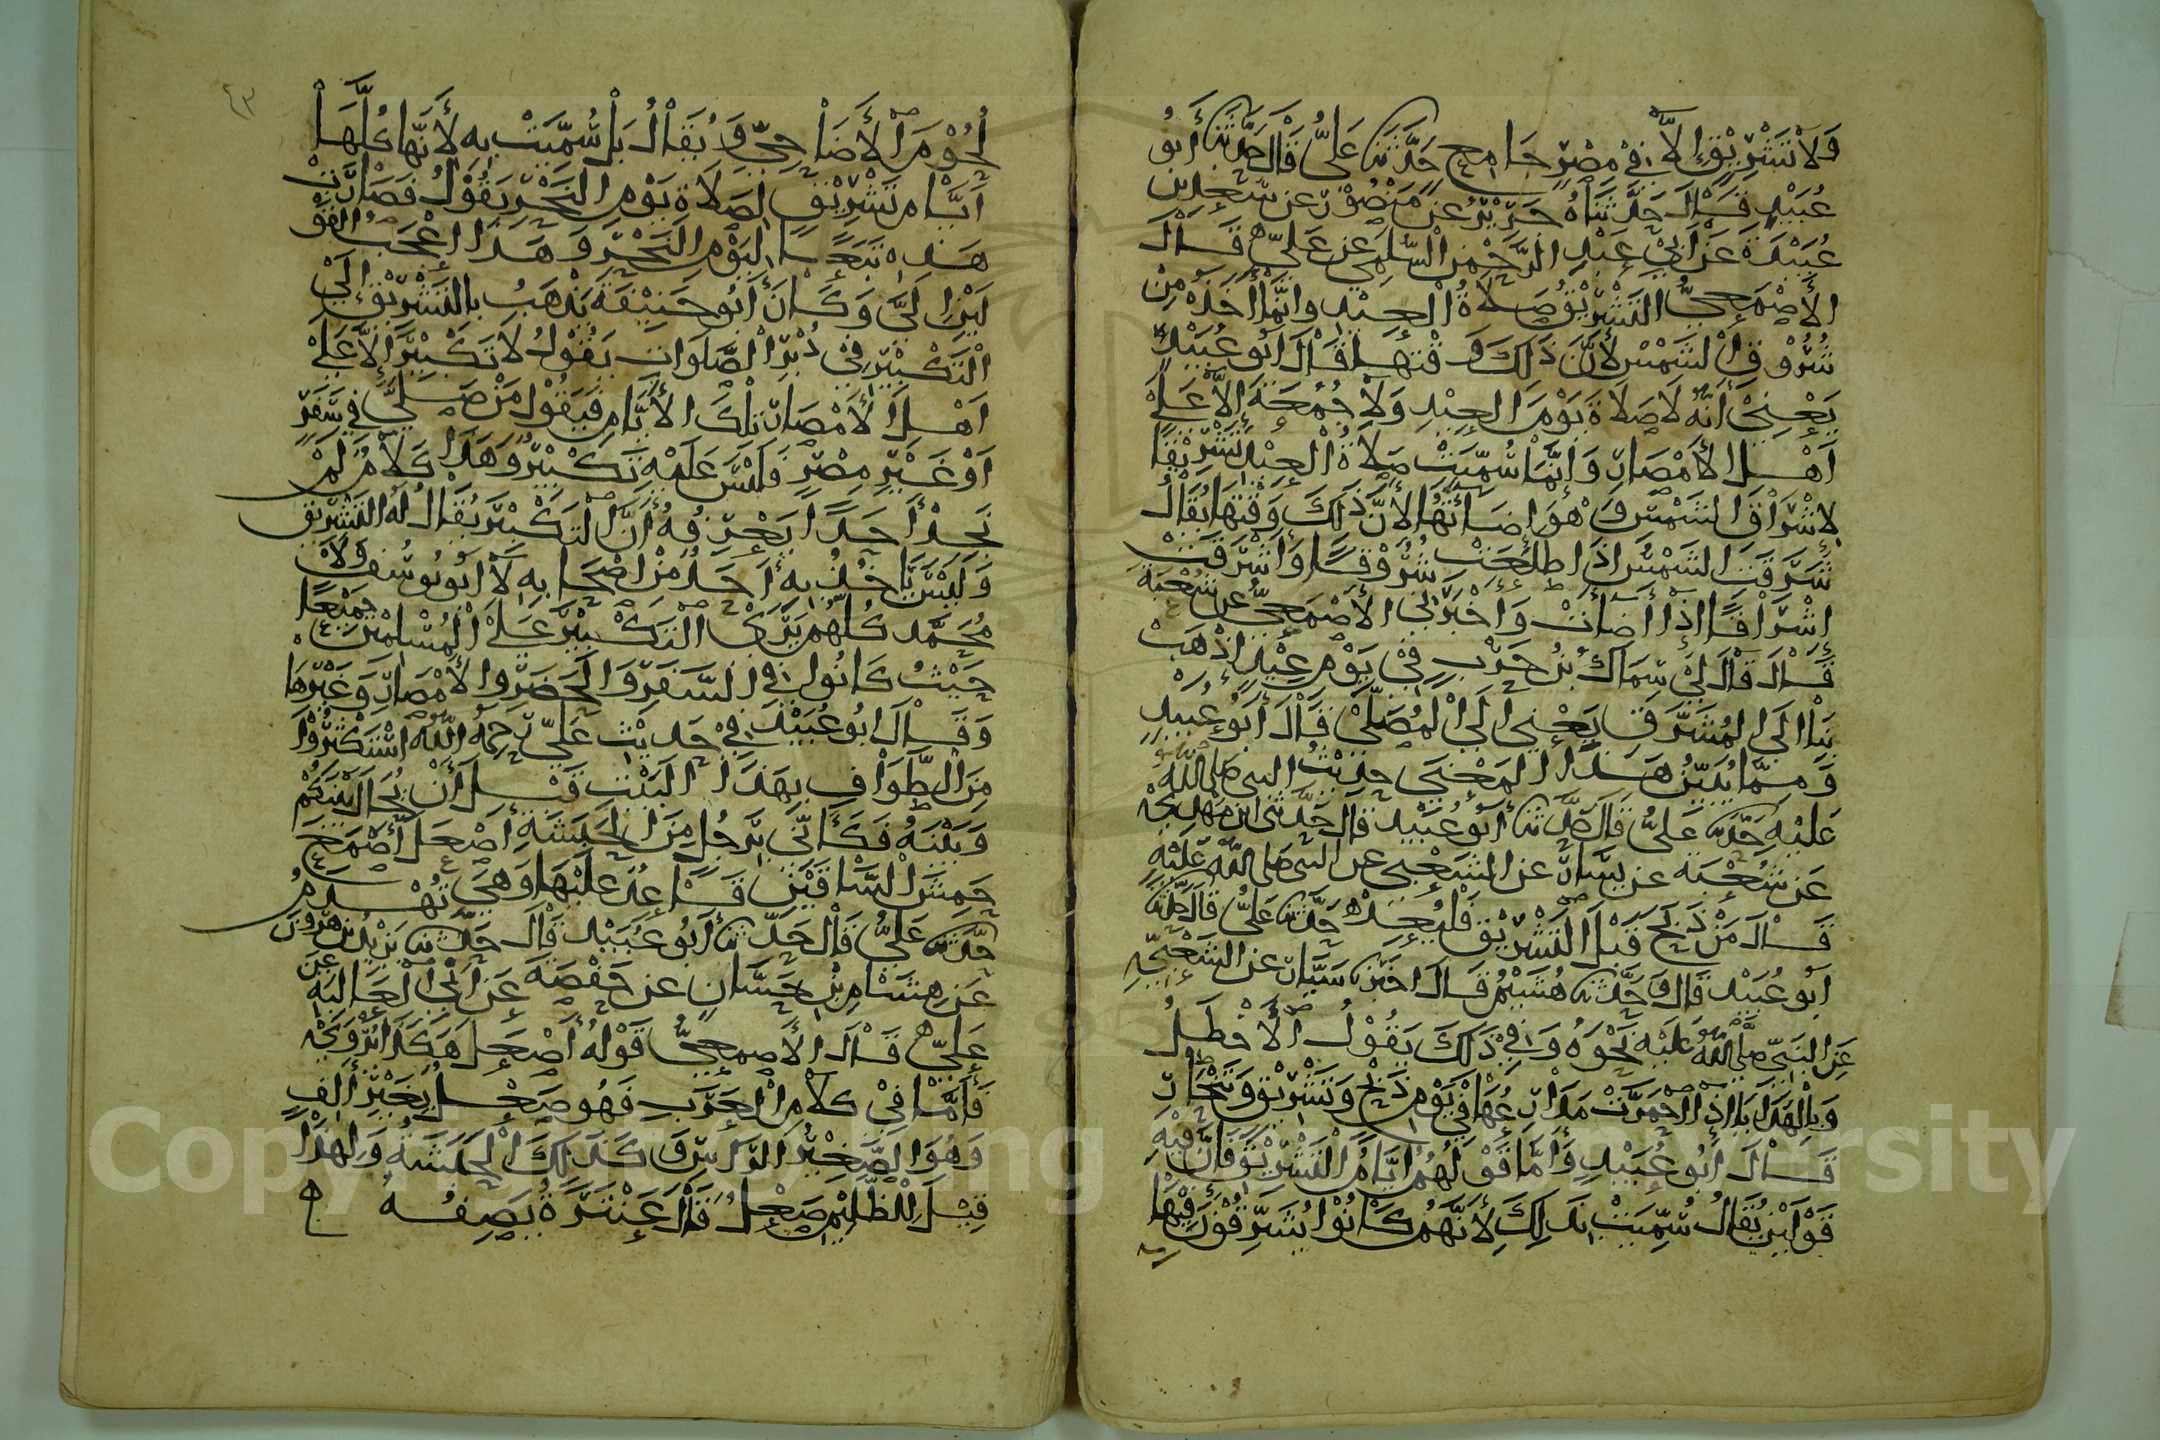 وَلَا تَشْرِيْقَ إِلَّا فِيْ مِصْرٍ جَامِعٍ حَدَّثَنَا عَلِيٌّ قَالَ حَدَّثَنَا أَبُو
عُبَيْدٍ قَالَ حَدَّثَنَاهُ جَرِيْرٌ عَنْ مَنْصُوْرٍ عَنْ سَعْدِ بْنِ
عُبَيْدَةَ عَنْ أَبِيْ عَبْدِ الرَّحْمٰنِ السُّلَمِيِّ عَنْ عَلِيٍّ قَالَ
الأَصْمَعِيُّ التَّشْرِيْقُ صَلَاةُ الْعِيْدِ وَإِنَّمَا أُخِذَهُ مِنْ
شُرُوْقِ الشَّمْسِ لِأَنَّ ذَلِكَ وَقْتُهَا قَالَ أَبُو عُبَيْدٍ
يَعْنِيْ أَنَّهُ لَا صَلَاةَ يَوْمَ الْعِيْدِ وَلَا جُمُعَةَ إِلَّا عَلَى
أَهْلِ الأَمْصَارِ وَإِنَّمَا سُمِّيَتْ صَلَاةُ الْعِيْدِ تَشْرِيْقًا
لِإِشْرَاقِ الشَّمْسِ وَهُوَ إِضَاءَتُهَا لِأَنَّ ذَلِكَ وَقْتُهَا يُقَالُ
شَرَقَتِ الشَّمْسُ إِذَا طَلَعَتْ شُرُوْقًا وَأَشْرَقَتْ
إِشْرَاقًا إِذَا أَضَاءَتْ وَأَخْبَرَنِي الأَصْمَعِيُّ عَنْ شُعْبَةَ
قَالَ قَالَ لِيْ سِمَاكُ بْنُ حَرْبٍ فِيْ يَوْمِ عِيْدٍ اذْهَبْ
بِنَا إِلَى الْمُشَرَّقِ يَعْنِي إِلَى الْمُصَلَّى قَالَ أَبُو عُبَيْدٍ
وَمِمَّا يُبَيِّنُ هَذَا الْمَعْنَى حَدِيْثُ النبي صَلَّى اللهُ
عَلَيْهِ حَدَّثَنَا عَلِيٌّ قَالَ حَدَّثَنَا أَبُو عُبَيْدٍ قَالَ حَدَّثَنِي ابْنُ مَهْدِيٍّ
عَنْ شُعْبَةَ عَنْ سَيَّارٍ عَنِ الشَّعْبِيِّ عن النبي صَلَّى اللهُ عَلَيْهِ
قَالَ مَنْ ذَبَحَ قَبْلَ التَّشْرِيْقِ فَلْيُعِدْ حَدَّثَنَا عَلِيٌّ قَالَ حَدَّثَنَا
أَبُو عُبَيْدٍ قَالَ وَحَدَّثَنَا هُشَيْمٌ قَالَ أَخْبَرَنَا سَيَّارٌ عَنِ الشَّعْبِيِّ
عَنِ النَّبِيِّ صَلَّى اللهُ عَلَيْهِ نَحْوَهُ وَفِيْ ذَلِكَ يَقُوْلُ الأَخْطَلُ
وَبِالْهَدَايَا إِذَا احْمَرَّتْ مَدَارِعُهَا فِيْ يَوْمِ ذَبْحٍ وَتَشْرِيْقٍ وَتَنْحَارِ
قَالَ أَبُو عُبَيْدٍ وَأَمَّا قَوْلُهُمْ أَيَّامُ التَّشْرِيْقِ فَإِنَّ فِيْهِ
قَوْلَيْنِ يُقَالُ سُمِّيَتْ بِذَلِكَ لِأَنَّهُمْ كَانُوْا يُشَرِّقُوْنَ فِيْهَا
٤٣
لُحُوْمَ الأَضَاحِيِّ وَيُقَالُ بَلْ سُمِّيَتْ بِهِ لِأَنَّهَا كُلَّهَا
أَيَّامُ تَشْرِيْقٍ لِصَلَاةِ يَوْمِ النَّحْرِ يَقُوْلُ فَصَارَتْ
هَذِهِ تَبَعًا لِيَوْمِ النَّحْرِ وَهَذَا أَعْجَبُ الْقَوْ
لَيْنِ إِلَيَّ وَكَانَ أَبُو حَنِيْفَةَ يَذْهَبُ بِالتَّشْرِيْقِ إِلَى
التَّكْبِيْرِ فِيْ دُبُرِ الصَّلَوَاتِ يَقُوْلُ لَا تَكْبِيْرَ إِلَّا عَلَى
أَهْلِ الأَمْصَارِ تِلْكَ الأَيَّامِ فَيَقُوْلُ مَنْ صَلَّى فِي سَفَرٍ
أَوْ غَيْرِ مِصْرٍ فَلَيْسَ عَلَيْهِ تَكْبِيْرٌ وَهَذَا كَلَامٌ لَمْ
نَجِدْ أَحَدًا يَعْرِفُهُ أَنَّ التَّكْبِيْرَ يُقَالُ لَهُ التَّشْرِيْقُ
وَلَيْسَ يَأْخُذُ بِهِ أَحَدٌ مِنْ أَصْحَابِهِ لَا أَبُو يُوسُفَ وَلَا
مُحَمَّدٌ كُلُّهُمْ يَرَى التَّكْبِيْرَ عَلَى الْمُسْلِمِيْنَ جَمِيْعًا
حَيْثُ كَانُوا فِي السَّفَرِ وَالْحَضَرِ وَالأَمْصَارِ وَغَيْرِهَا
وَقَالَ أَبُو عُبَيْدٍ فِيْ حَدِيْثِ عَلِيٍّ رَحِمَهُ اللهُ اسْتَكْثِرُوْا
مِنَ الطَّوَافِ بِهَذَا الْبَيْتِ قَبْلَ أَنْ يُحَالَ بَيْنَكُمْ
وَبَيْنَهُ فَكَأَنِّي بِرَجُلٍ مِنَ الْحَبَشَةِ أَصْعَلَ أَصْمَعَ
حَمِشَ السَّاقَيْنِ قَاعِدٌ عَلَيْهَا وَهِيَ تُهْدَمُ
حَدَّثَنَا عَلِيٌّ قَالَ حَدَّثَنَا أَبُو عُبَيْدٍ قَالَ حَدَّثَنَا يَزِيْدُ بْنُ هَرُونَ
عَنْ هِشَامِ بْنِ حَسَّانٍ عَنْ حَفْصَةَ عَنْ أَبِي الْعَالِيَةِ عَنْ
عَلِيٍّ قَالَ الأَصْمَعِيُّ قَوْلُهُ أَصْعَلُ هَكَذَا يُرْوَى
فَأَمَّا فِيْ كَلَامِ الْعَرَبِ فَهُوَ صَعْلٌ بِغَيْرِ أَلِفٍ
وَهُوَ الصَّغِيْرُ الرَّأْسِ وَكَذَلِكَ الْحَبَشَةُ وَلِهَذَا
قِيْلَ لِلظَّلِيْمِ صَعْلٌ قَالَ عَنْتَرَةُ يَصِفُهُ
Copyright © King Saud University